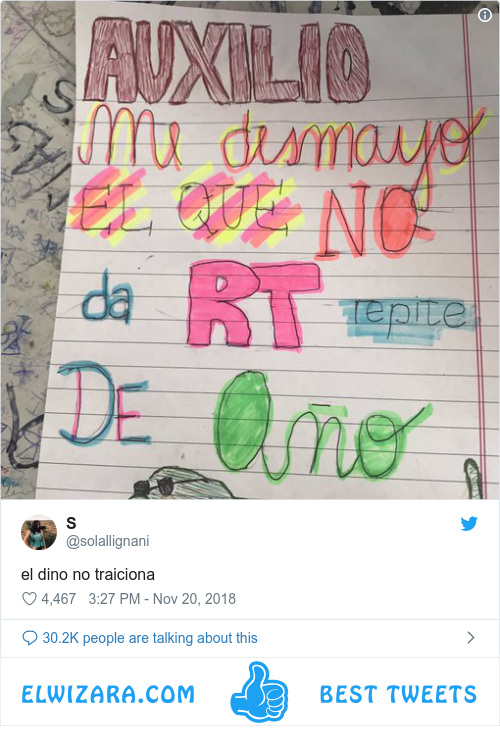 AUXILIO
me desmayo
EL QUE NO
da RT repite
DE Año
S
@solallignani
el dino no traiciona
4,467 3:27 PM - Nov 20, 2018
30.2K people are talking about this
ELWIZARA.COM BEST TWEETS